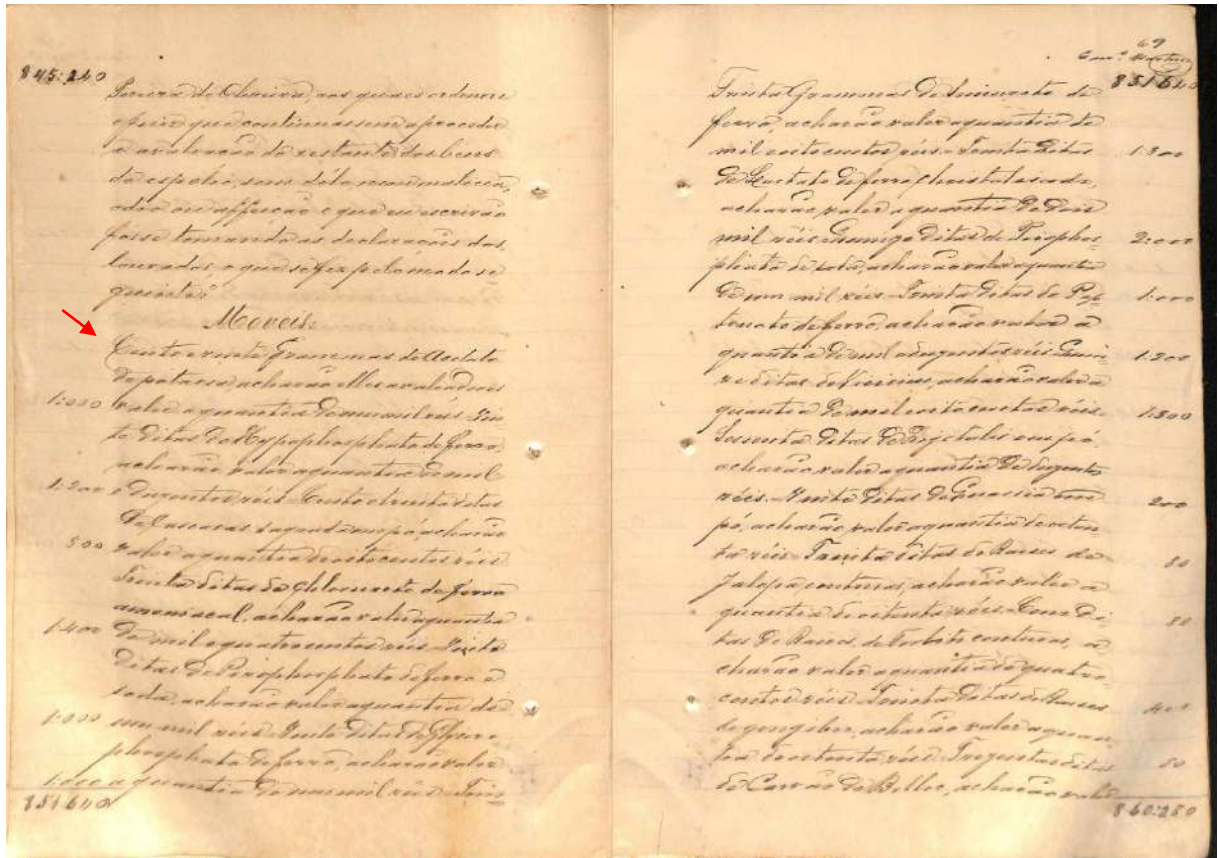 845:240
Pereira de Oliveira, aos quaes ordenou
o juiz que continuassem a proceder
a avaliação do restante dos bens
do espolio, sem dólo nem malicia,
odio ou affeição e que eu escrivão
fosse tomando as declarações dos
louvados, o que se fez pelo modo se
guinte:
Moveis:
Cento e vinte grammas de Acetato
de potassa, acharão elles avaliadores
1:000 valer a quantia de um mil réis. Vin
te Ditas de Hypophosphato de ferro,
acharão valer a quantia de mil
1:200 e duzentos réis. Cento e trinta ditas
de Cascaras sagrada em pó, acharão
800 valer a quantia de oitocentos réis
Trenta ditas de Chlorureto de ferro
amoniacal, acharão valer a quantia
1:400 de mil e quatrocentos réis.
Ditas de Pirophosphato de ferro e
soda, acharão valer a quantia de
1:000 um mil réis. Ditas de
phosphato de ferro, acharão valer
1:000 a quantia de um mil réis. Trin
851640
69
851640
Trinta Grammas de de
ferro, acharão valer a quantia de
mil oitocentos réis. Trinta Ditas 1:800
de Lactato de ferro
acharão valer a quantia de dois
mil réis. Ditas de Pirophos 2:000
phato de soda, acharão valer a quantia
de um mil réis. Trinta Ditas de 1:000
de ferro, acharão valer a
quantia de mil e duzentos réis. 1:200
ditas de acharão valer a
quantia de mil oitocentos réis. 1:800
Sessenta Ditas de Digitalis em pó,
acharão valer a quantia de duzentos
réis. Ditas de Quassia em 200
pó, acharão valer a quantia de oiten
ta réis. Trenta ditas de Raises de 80
Jalapa contusas, acharão valer a
quantia de oitenta réis. Cem Di 80
tas de Raises de Turbith contusas, a
charão valer a quantia de quatro
centos réis. Trinta Ditas de Raises 400
de gengibre, acharão valer a quan
tia de oitenta réis. Ditas 80
de Carvão de Belloc, acharão valer
860:280